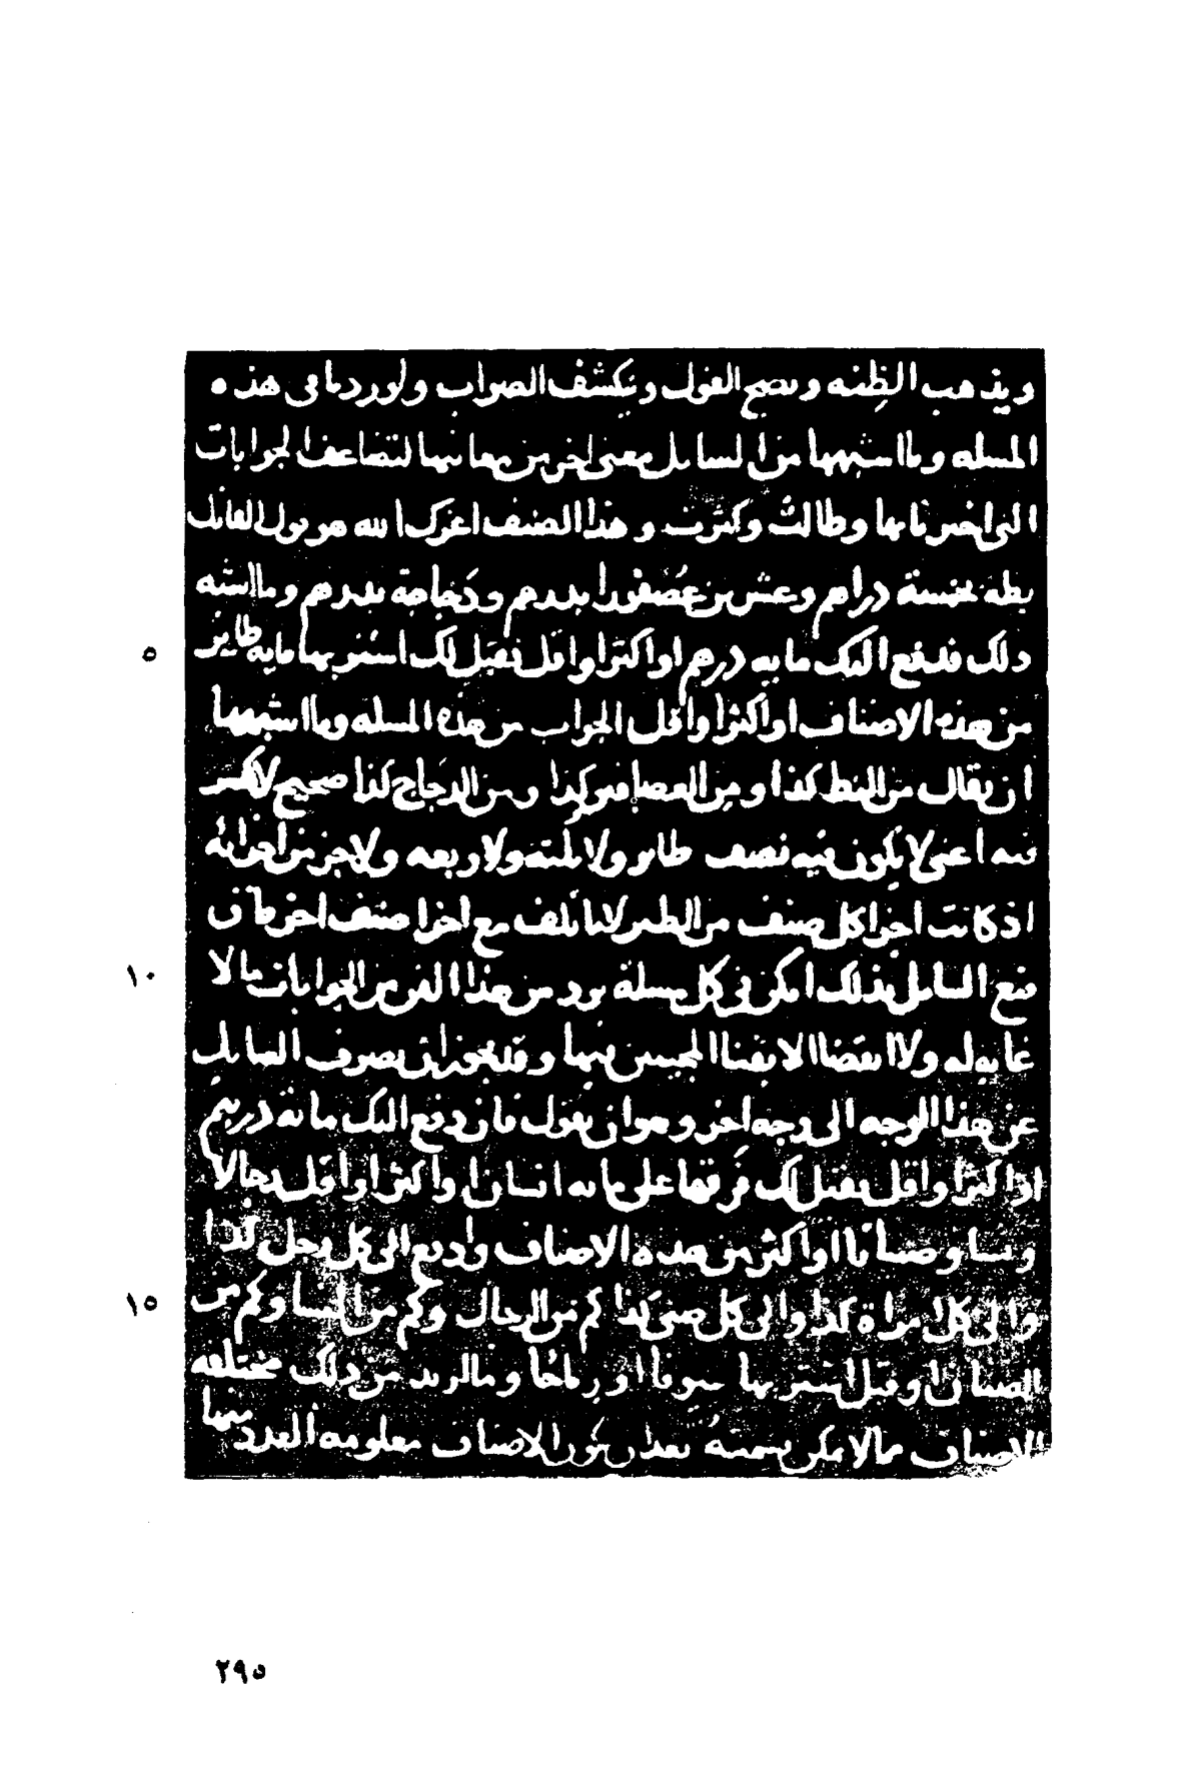 ويذهب الظنه ويصح القول وينكشف الصواب ولو زدنا في هذه
المسله وما اشبهها من المسايل معنى اخر من معانيها لتضاعف الجوابات
التى اخبرنا بها وطالت وكثرت وهذا الصنف اعزك الله هو قول القايل
بطه بخمسة دراهم وعشرين عصفورا بدرهم ودجاجة بدرهم وما اشبه
٥
ذلك فدفع اليك مايه درهم او اكثر او اقل فقيل لك اشتر بها مايه طاير
من هذه الاصناف او اكثر او اقل الجواب من هذه المسله وما اشبهها
ان يقال من البط كذا ومن العصافير كذا ومن الدجاج كذا صحيح لا كسر
فيه اعنى لا يكون فيه نصف طاير ولا ثلثه ولا ربعه ولا جز من اجزائه
اذ كانت اجزا كل صنف من الطير لا تاتلف مع اجزا صنف اخر فان
١٠
قنع السايل بذلك امكن في كل مسلة ترد من هذا الفن من الجوابات ما لا
غايه له ولا انقضا الا بفنا المجيبين فيها وقد يجوز ان يصرف السايل
عن هذا الوجه الى وجه اخر وهو ان يقول فان دفع اليك مائة درهم
او اكثر او اقل فقيل لك فرقها على مايه انسان او اكثر او اقل رجالا
ونسا وصبيانا او اكثر من هذه الاصناف وادفع الى كل رجل كذا
١٥
والى كل مراة كذا والى كل صبي كذا كم من الرجال وكم من النسا وكم من
الصبيان او قيل اشتر بها وما تريد من ذلك مختلفه
الاصناف مما لا يمكن قسمته بعد ان يكون الاصناف معلومه العدد منها
٢٩٥